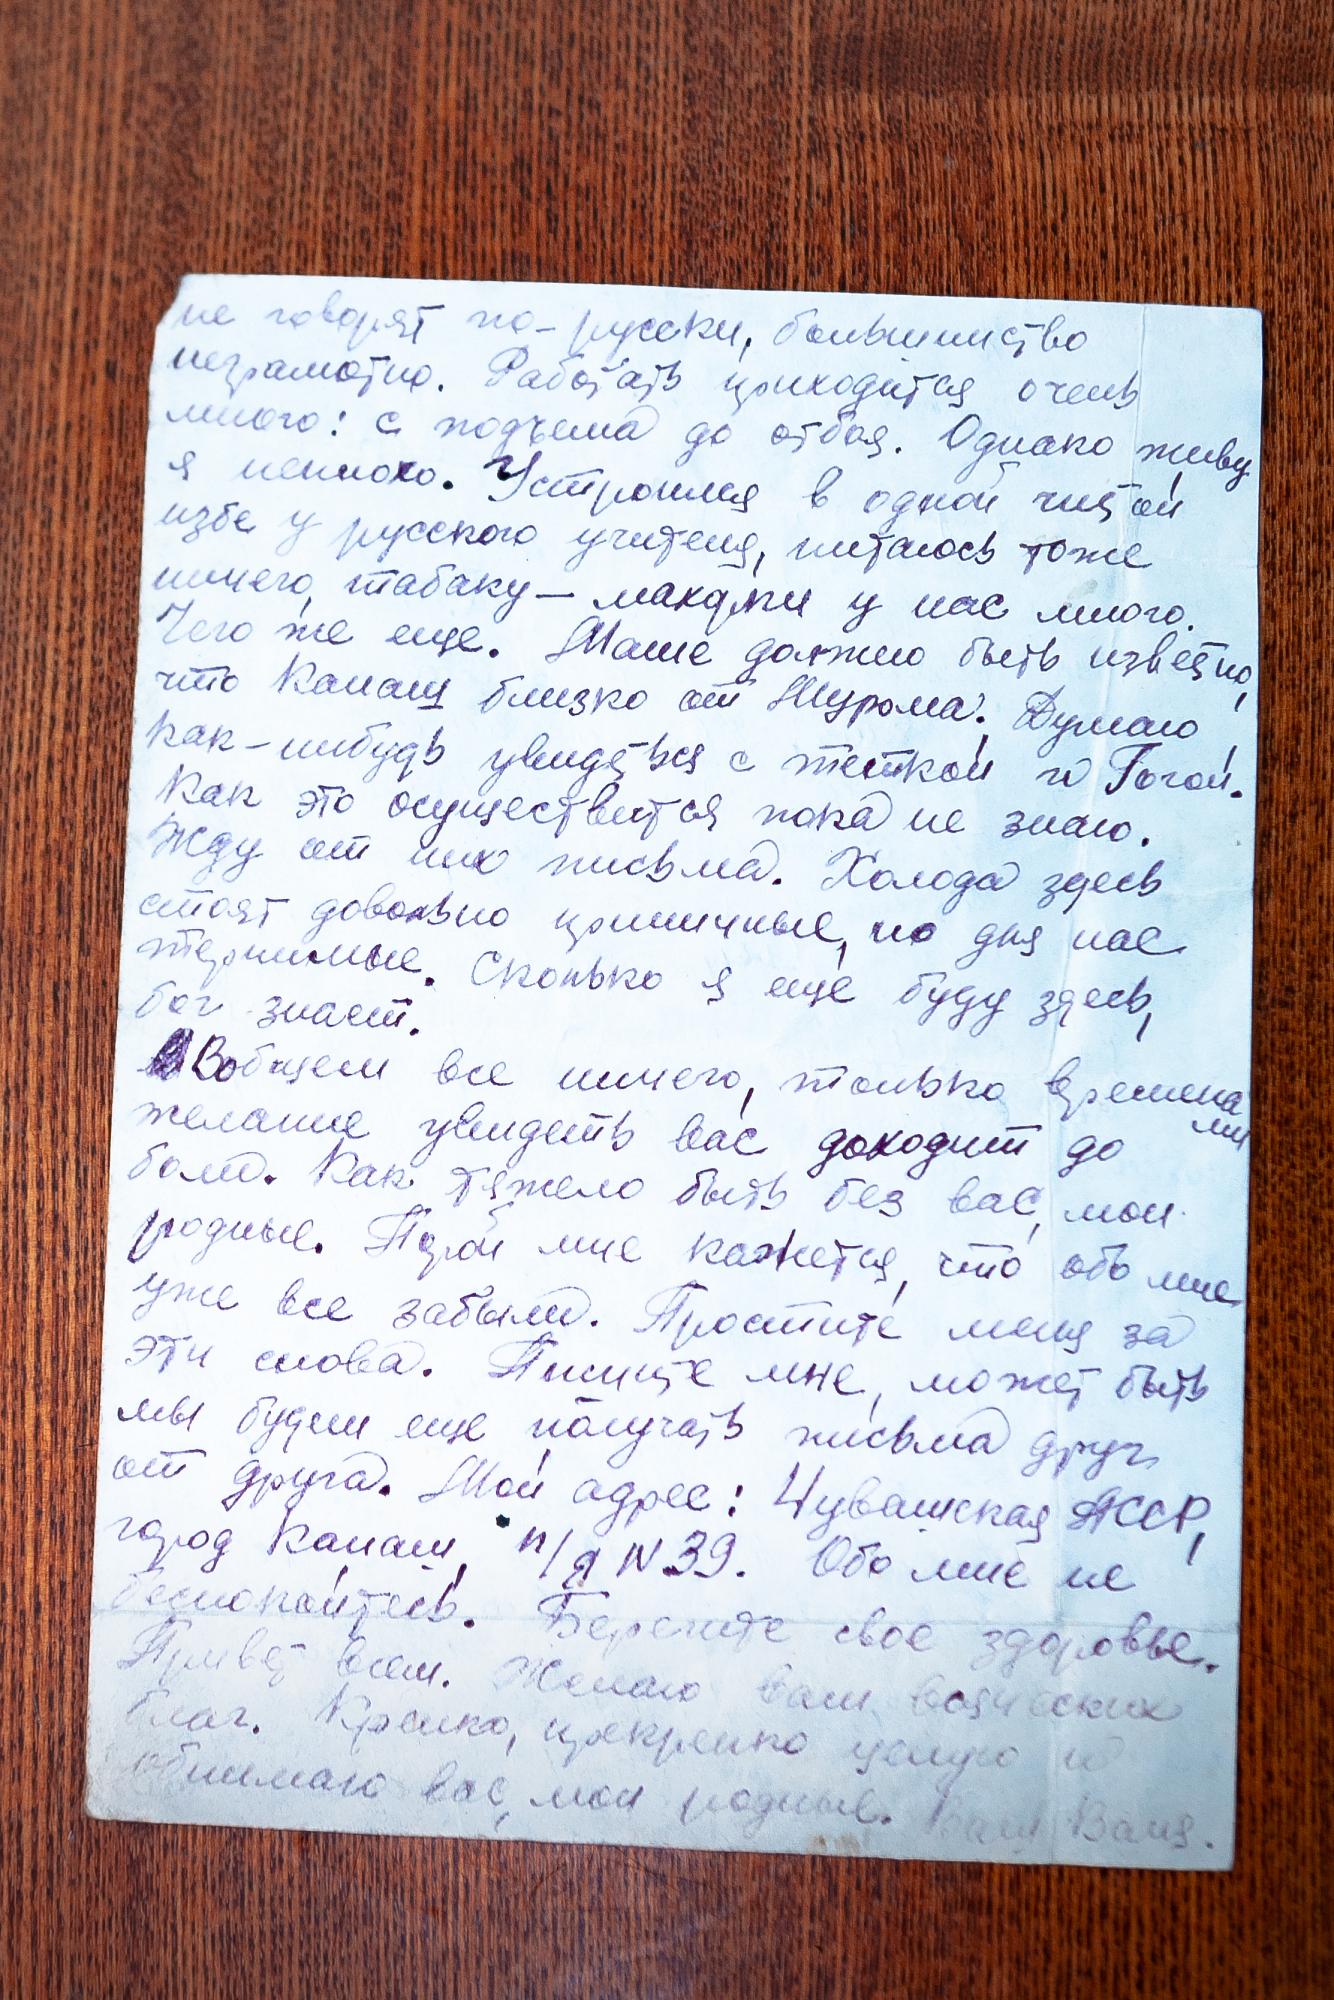 не говорят по-русски, большинство
неграмотно. Работать приходится очень
много: с подъема до отбоя. Однако живу
я неплохо. Устроился в одной чистой
избе у русского учителя, питаюсь тоже
ничего, табаку — махорки у нас много.
Чего же еще. Маме должно быть известно,
что Канаш близко от Мурома. Думаю
как-нибудь увидеться с теткой и Гогой.
Как это осуществится пока не знаю.
Жду от них письма. Холода здесь
стоят довольно приличные, но для нас
терпимые. Сколько я еще буду здесь,
бог знает.
Вобщем все ничего, только временами
желание увидеть вас доходит до
боли. Как тяжело быть без вас, мои
родные. Порой мне кажется, что обо мне
уже все забыли. Простите меня за
эти слова. Пишите мне, может быть
мы будем еще получать письма друг
от друга. Мой адрес: Чувашская АССР,
город Канаш, п/я N 39. Обо мне не
беспокойтесь. Берегите свое здоровье.
Привет всем. Желаю вам всяческих
благ. Крепко, прекрепко целую и
обнимаю вас, мои родные. Ваш Ваня.